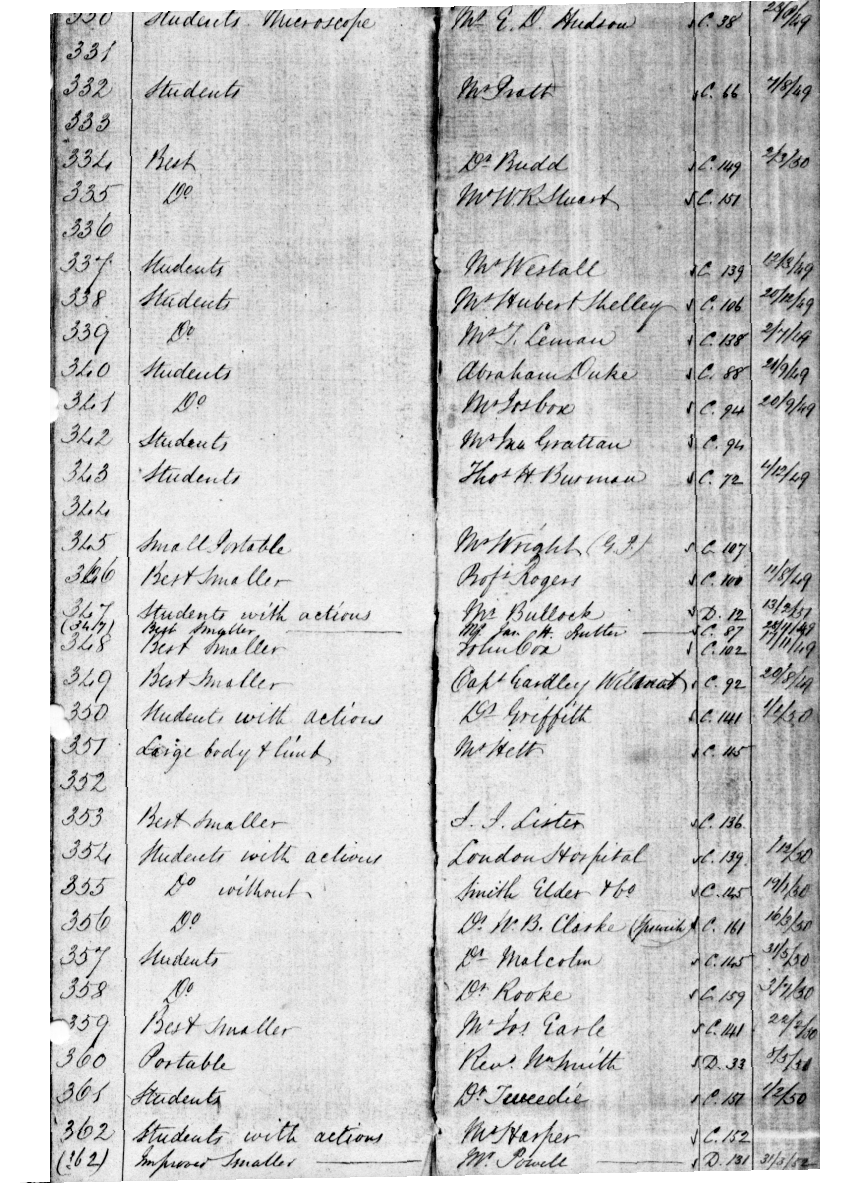 330 Students Microscope Mr E. D. Hudson s C. 38 23/9/49
331
332 Students Mr Pratt s C. 66 7/8/49
333
334 Best Dr Budd s C. 149 2/3/50
335 Do Mr W R Stuart s C. 151
336
337 Students Mr Westall s C. 139 12/3/49
338 Students Mr Hubert Shelley s C. 106 20/12/49
339 Do Mr T. Leman s C. 138 2/7/49
340 Students Abraham Duke s C. 88 21/9/49
341 Do Mr Jos Cox s C. 94 20/9/49
342 Students Mr Jno Grattan s C. 94
343 Students Thos H Burman s C. 72 4/12/49
344
345 Small Portable Mr Wright s C. 107
346 Best Smaller Profs Rogers s C. 100 11/8/49
347 Students with actions Mr Bullock s D. 12 13/2/51
(347) Best Smaller Jas. H. Rutter s C. 87
348 Best Smaller John Cox s C. 102 17/11/49
349 Best Smaller Capt Eardley Wilmot s C. 92 20/8/49
350 Students with actions Dr Griffith s C. 141 1/2/50
351 Large body & limb Mr Hett s C. 145
352
353 Best Smaller J. J. Lister s C. 136
354 Students with actions London Hospital s C. 139 1/12/50
355 Do without Smith Elder & Co s C. 145 19/1/50
356 Do Dr W. B. Clarke (Ipswich) s C. 161 16/3/50
357 Students Dr Malcolm s C. 145 31/5/50
358 Do Dr Rooke s C. 159 2/7/50
359 Best Smaller Mr Jos Earle s C. 141 22/2/50
360 Portable Revd Wm Smith s D. 33 8/5/51
361 Students Dr Tweedie s C. 151 1/2/50
362 Students with actions Mr Harper s C. 152
(362) Improved Smaller Mr Powell s D. 131 31/3/52